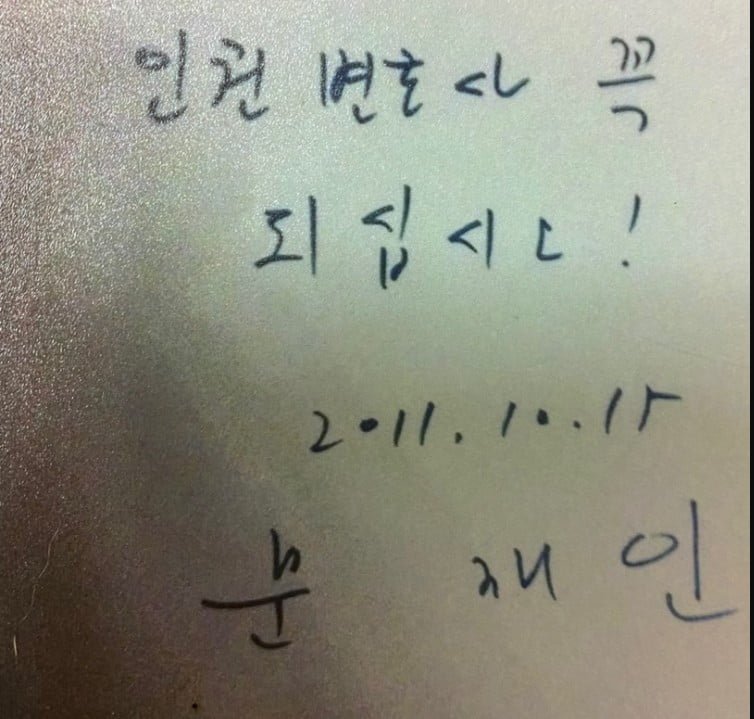 인권 변호사 꼭
되십시오!
2011. 10. 15
문 재 인